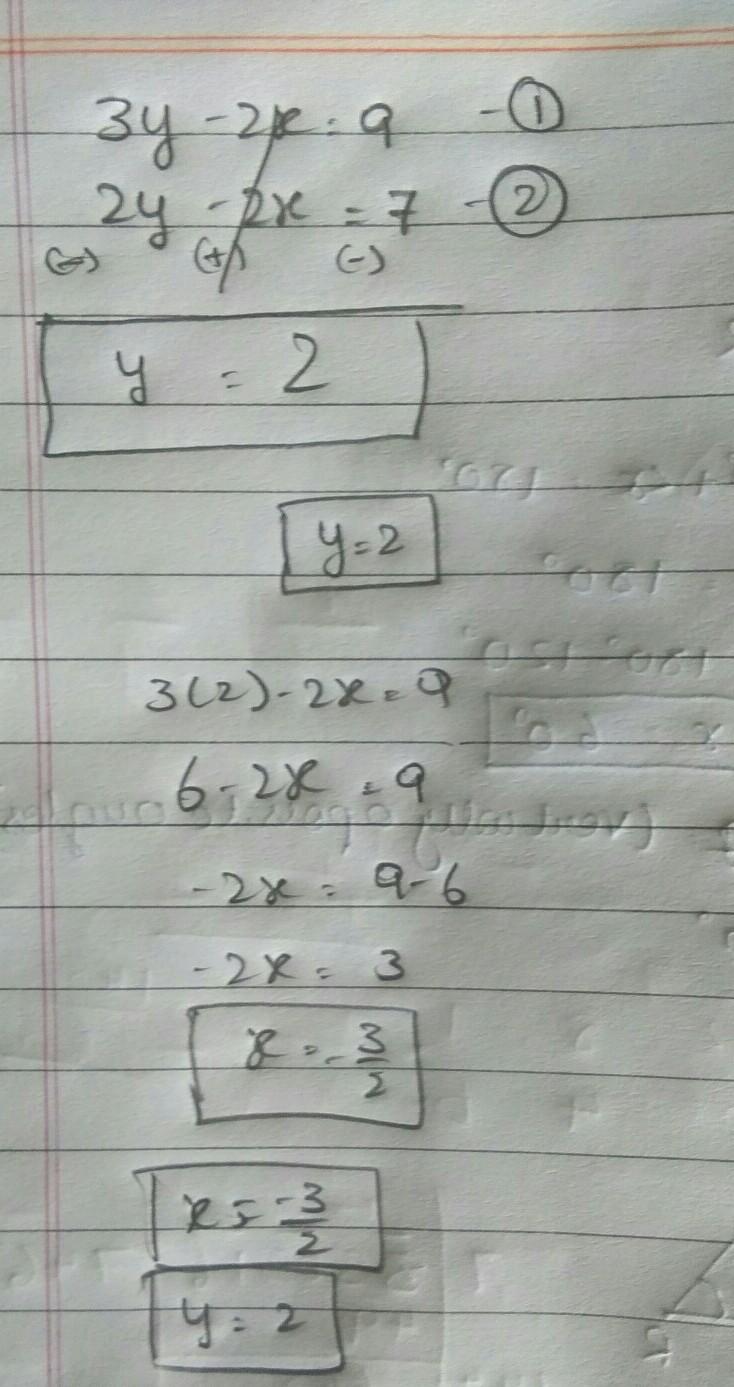 3y - 2x = 9 - ①
2y - 2x = 7 - ②
(-) (+) (-)
y = 2
y = 2
3(2) - 2x = 9
6 - 2x = 9
-2x = 9 - 6
-2x = 3
x = -3/2
x = -3/2
y = 2